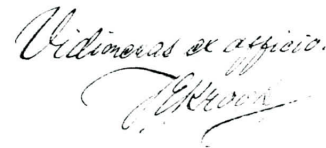 Vidimeras ex officio.